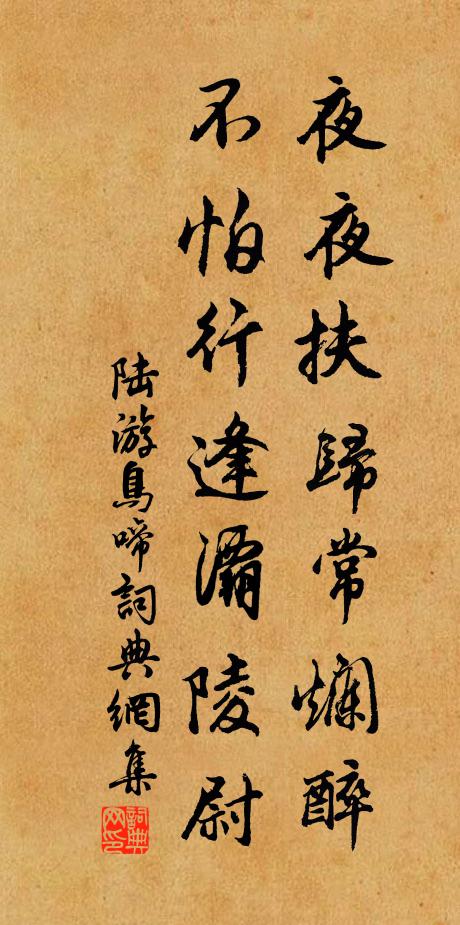 夜夜扶歸常爛醉
不怕行逢灞陵尉
陆游鳥啼詞典網集
詞典
网印